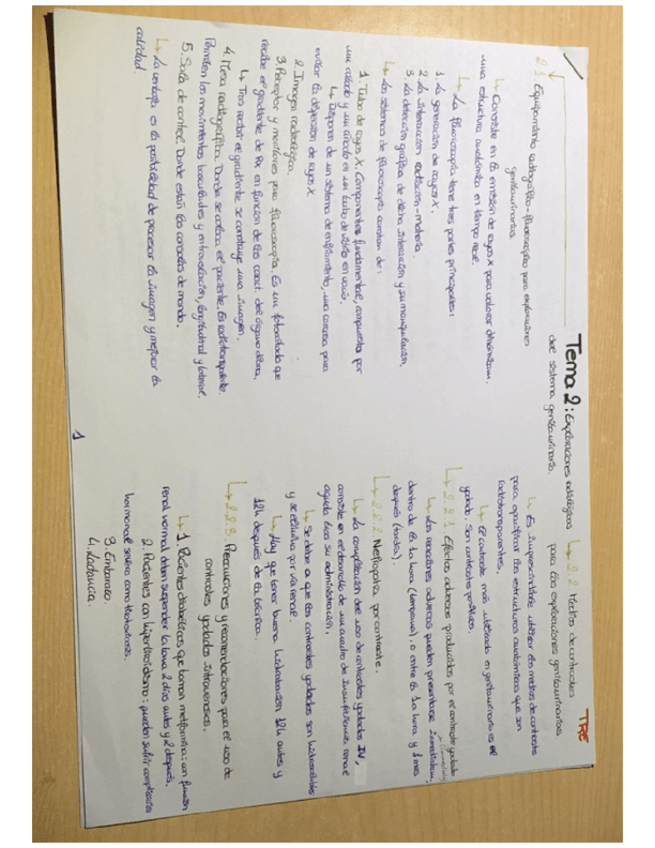 TRE
Tema 2: Exploraciones radiológicas
del sistema genitourinario.
2.1 Equipamiento radiográfico-fluoroscópico para exploraciones
genitourinarias
↳ Consiste en la emisión de rayos X para valorar dinámicam.
una estructura anatómica en tiempo real.
↳ La fluoroscopia tiene tres partes principales:
1. La generación de rayos X.
2. La interacción radiación-materia.
3. La detección gráfica de dicha interacción y su manipulación.
↳ Los sistemas de fluoroscopia constan de:
1. Tubo de rayos X. Componente fundamental, compuesta por
un cátodo y un ánodo en un tubo de vidrio en vacío.
↳ Disponen de un sistema de enfriamiento, una coraza para
evitar la dispersión de rayos X
2. Imagen radiológica.
3. Receptor y monitores para fluoroscopia. Es un fotocátodo que
recibe el gradiente de Rx en función de las caract. del órgano diana.
↳ Tras recibir el gradiente se construye una imagen.
4. Mesa radiográfica. Donde se coloca el paciente. Es radiotransparente.
Permiten los movimientos basculantes y en translación, longitudinal y lateral.
5. Sala de control. Donde están las consolas de mando.
↳ La ventaja es la posibilidad de procesar la imagen y mejorar la
calidad
1
↳ 2.2 Medios de contrastes
para las exploraciones genitourinarias.
↳ Es imprescindible utilizar los medios de contraste
para opacificar las estructuras anatómicas que son
radiotransparentes.
↳ El contraste más utilizado en genitourinario es el
yodado. Son contrastes positivos.
↳ 2.2.1 Efectos adversos producidos por el contraste yodado
↳ Las reacciones adversas pueden presentarse inmediatam.,
dentro de la 1a hora (temprana), o entre la 1a hora y 1 mes
después (tardía).
↳ 2.2.2 Nefropatía por contraste.
↳ La complicación del uso de contrastes yodados IV,
consiste en el desarrollo de un cuadro de insuficiencia renal
aguda tras su administración.
↳ Se debe a que los contrastes yodados son hidrosolubles
y se elimina por vía renal.
↳ Hay que tener buena hidratación 12h antes y
12h después de la técnica.
↳ 2.2.3. Precauciones y recomendaciones para el uso de
contrastes yodados intravenosos.
↳ 1. Pacientes diabéticos que toman metformina: con función
renal normal deben suspender la toma 2 días antes y 2 después.
2. Pacientes con hipertiroidismo: pueden sufrir complicación
hormonal severa como tirotoxicosis.
3. Embarazo.
4. Lactancia.